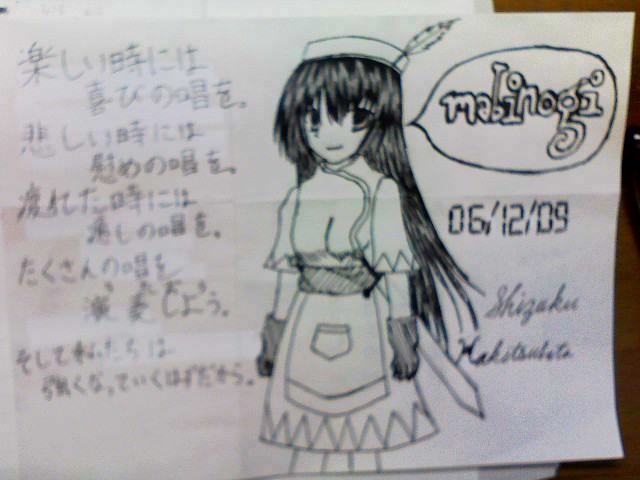 楽しい時には
喜びの唱を。
悲しい時には
慰めの唱を。
疲れた時には
癒しの唱を。
たくさんの唱を
演奏しよう。
そして私たちは
強くなっていくはずだから。
mabinogi
06/12/09
Shizuku